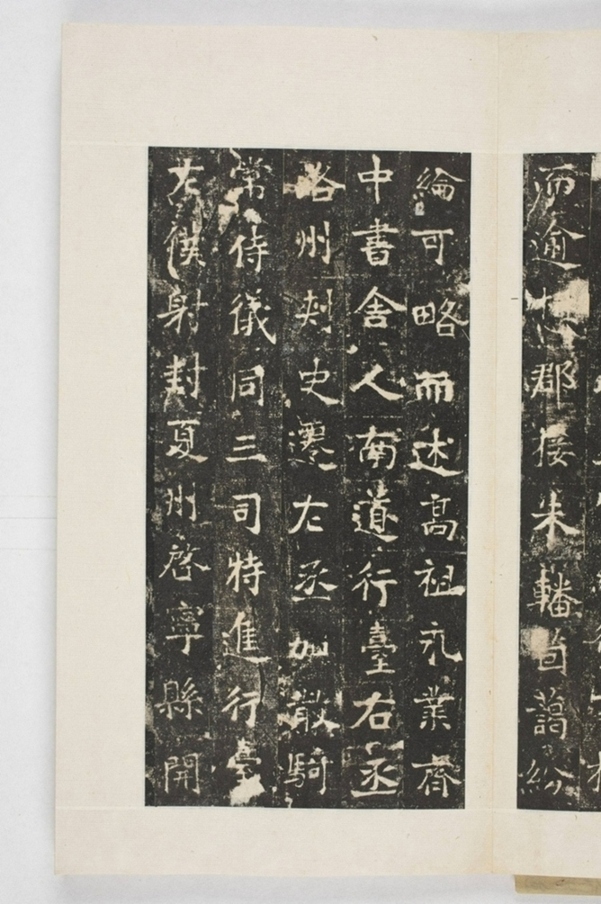 而逾郡接朱轓藹紛
綸可略而述高祖永業齊
中書舍人南道行臺右丞
洛州刾史遷左丞加散騎
常侍儀同三司特進行臺
左僕射封夏州啓寧縣開